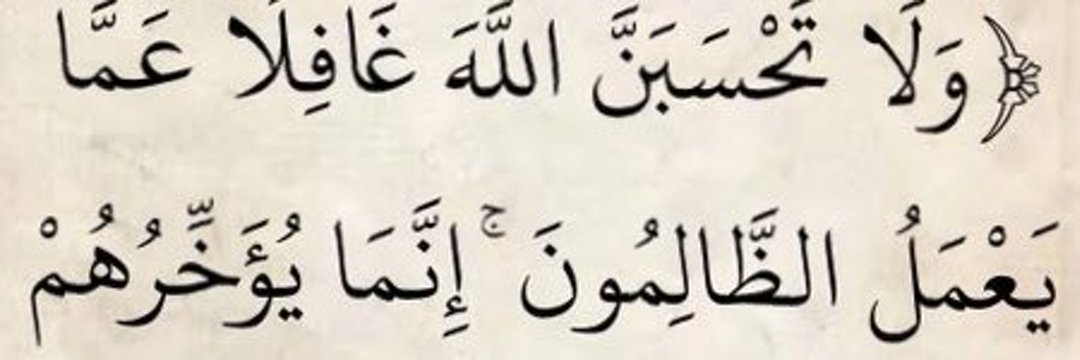 ﴿ وَلَا تَحْسَبَنَّ اللَّهَ غَافِلًا عَمَّا
يَعْمَلُ الظَّالِمُونَ ۚ إِنَّمَا يُؤَخِّرُهُمْ